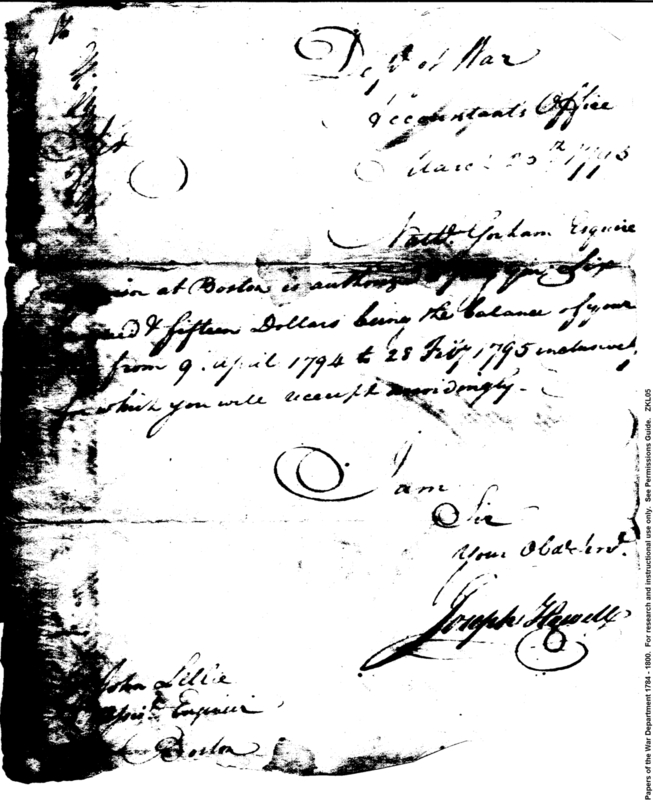 Dept. of War
Accountant's Office
March 20th 1795
Nathl. Gorham Esquire
at Boston is authorized to pay you Six
& fifteen Dollars being the balance of your
from 9. April 1794 to 28 Feby 1795 inclusively
which you will receipt accordingly.
I am
Sir
Your Obdt Servt.
Joseph Howell
John Lillie
Engineer
Boston
Papers of the War Department 1784 - 1800. For research and instructional use only. See Permissions Guide. ZKL05